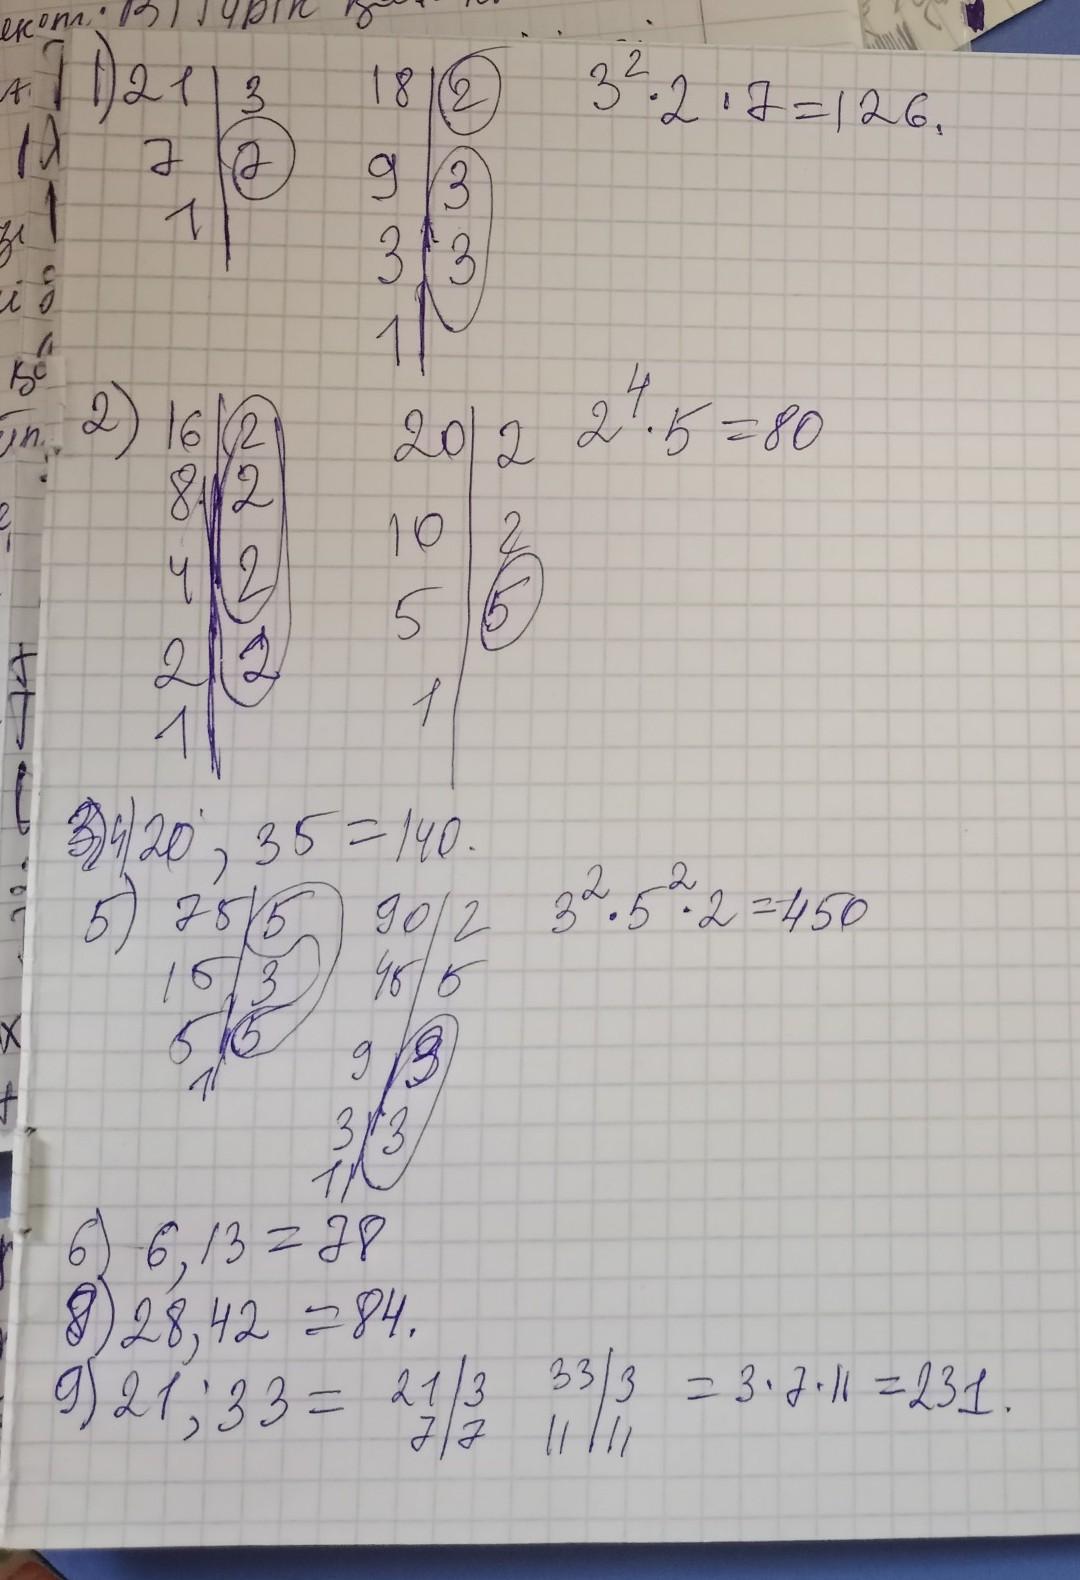 1) 21 | 3 18 | 2 3² · 2 · 7 = 126.
7 | 7 9 | 3
1 | 3 | 3
1 |
2) 16 | 2 20 | 2 2⁴ · 5 = 80
8 | 2 10 | 2
4 | 2 5 | 5
2 | 2 1 |
1 |
4) 20 ; 35 = 140.
5) 75 | 5 90 | 2 3² · 5² · 2 = 450
15 | 3 45 | 5
5 | 5 9 | 3
1 | 3 | 3
1 |
6) 6, 13 = 78
8) 28, 42 = 84.
9) 21 ; 33 = 21 | 3 33 | 3 = 3 · 7 · 11 = 231.
7 | 7 11 | 11